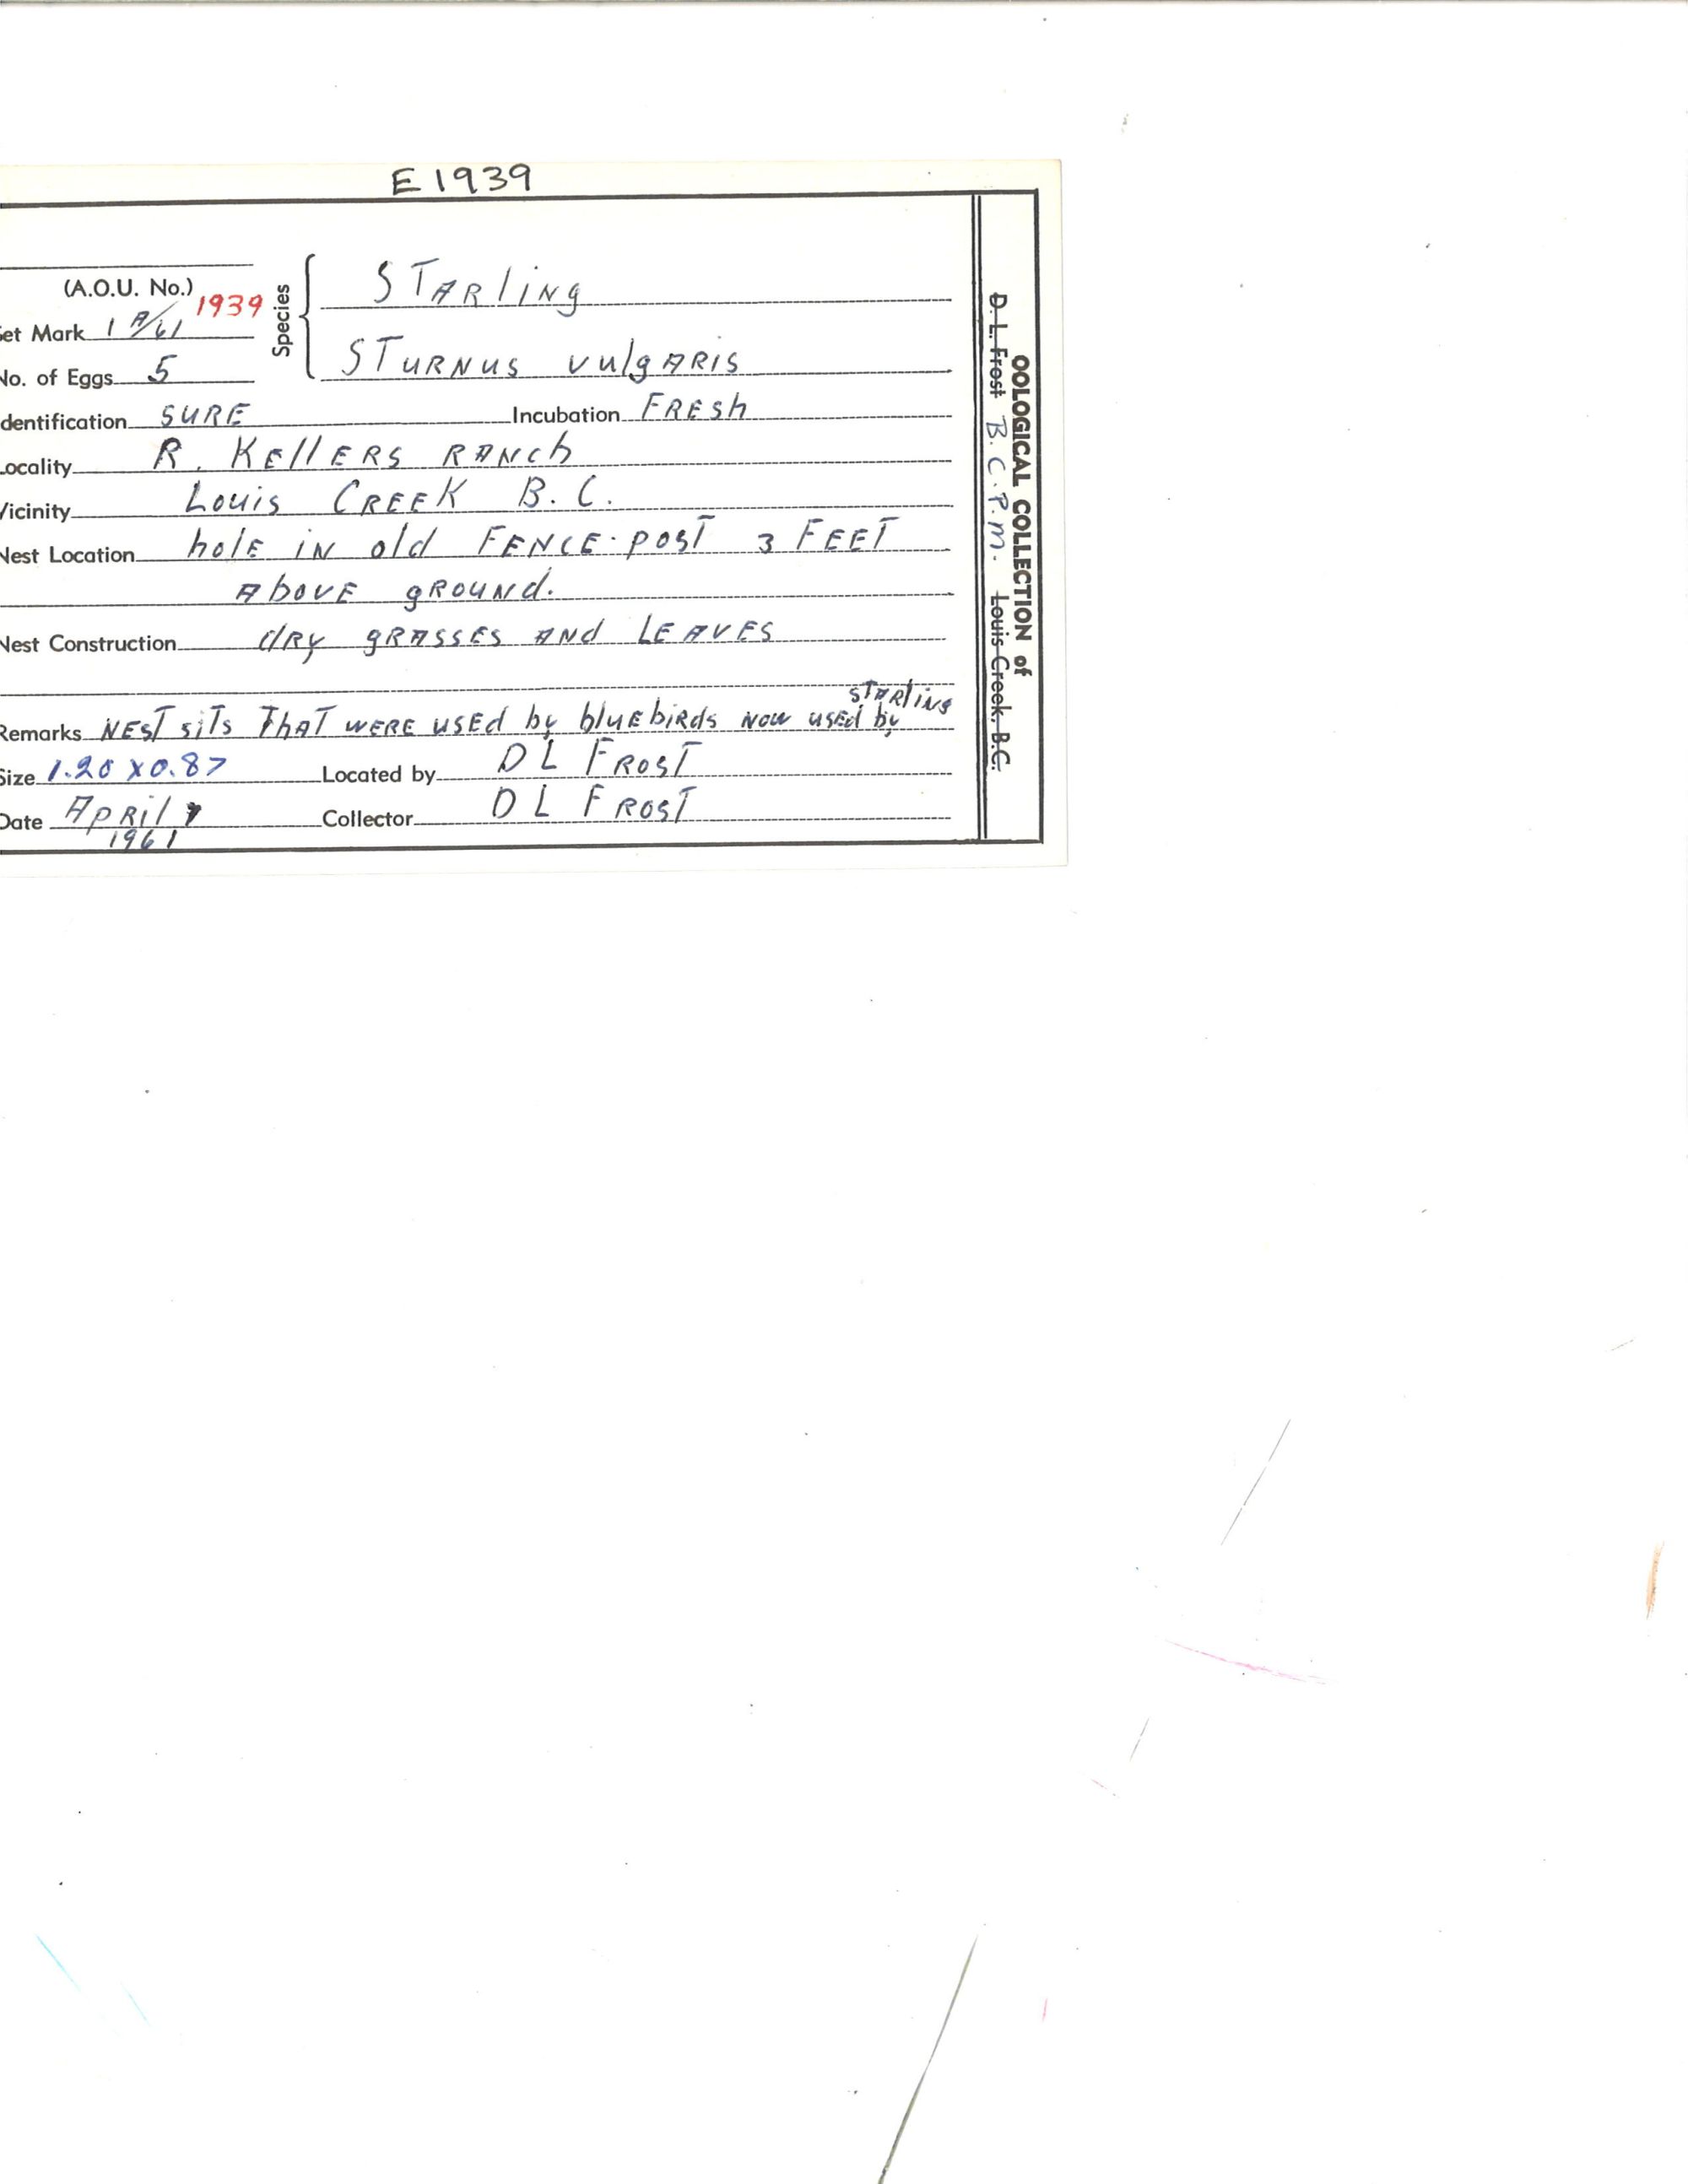 E1939
(A.O.U. No.) 1939
et Mark 1 A/61
Species
STARling
No. of Eggs 5
STURNUS vulgARIS
dentification SURE Incubation FRESh
Locality R. KEllERS RANCh
Vicinity Louis CREEK B.C.
Nest Location holE iN old FENCE-post 3 FEET
AbovE gROUNd.
Nest Construction dRy gRASSES ANd LEAVES
STARliNg
Remarks NEST siTs ThAT WERE USEd by bluEbiRds Now usEd by
Size 1.20 X 0.87 Located by D L FROST
Date APRil 7 Collector D L FROST
1961
OOLOGICAL COLLECTION of
D. L. Frost B.C.P.M. Louis Creek, B.C.